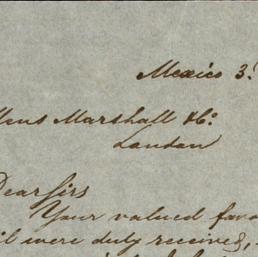 Mexico 3
Marshall & Co.
London
Dear Sirs
Your valued favo
il were duly received,